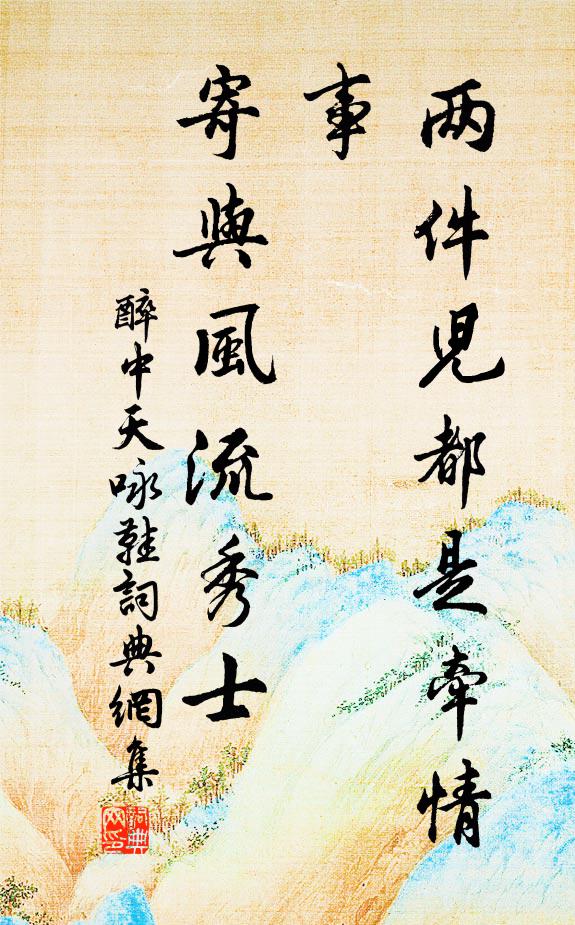 两件児都是牽情
事
寄與風流秀士
醉中天咏鞋詞典網集
詞典
网印